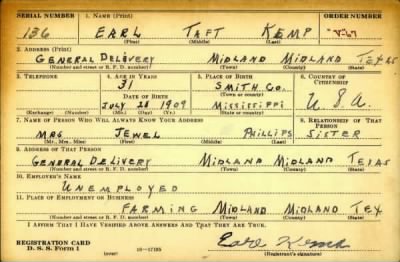 SERIAL NUMBER 1. NAME (Print) ORDER NUMBER
136 EARL TAFT KEMP
(First) (Middle) (Last)
2. ADDRESS (Print)
GENERAL DELOVERY MIDLAND MIDLAND TEXAS
(Number and street or R. F. D. number) (Town) (County) (State)
3. TELEPHONE 4. AGE IN YEARS 5. PLACE OF BIRTH 6. COUNTRY OF CITIZENSHIP
31 SMITH CO.
DATE OF BIRTH (Town or county)
JULY 28 1909 MISSISSIPPI U.S.A
(Exchange) (Number) (Mo.) (Day) (Yr.) (State or country)
7. NAME OF PERSON WHO WILL ALWAYS KNOW YOUR ADDRESS 8. RELATIONSHIP OF THAT PERSON
MRS JEWEL PHILLIPS SISTER
(Mr., Mrs., Miss) (First) (Middle) (Last)
9. ADDRESS OF THAT PERSON
GENERAL DELIVERY MIDLAND MIDLAND TEXAS
(Number and street or R. F. D. number) (Town) (County) (State)
10. EMPLOYER'S NAME
UNEMPLOYED
11. PLACE OF EMPLOYMENT OR BUSINESS
FARMING MIDLAND MIDLAND TEX
(Number and street or R. F. D. number) (Town) (County) (State)
I AFFIRM THAT I HAVE VERIFIED ABOVE ANSWERS AND THAT THEY ARE TRUE.
REGISTRATION CARD
D. S. S. Form 1 (over) 16—17105 Earl Kemp
(Registrant's signature)